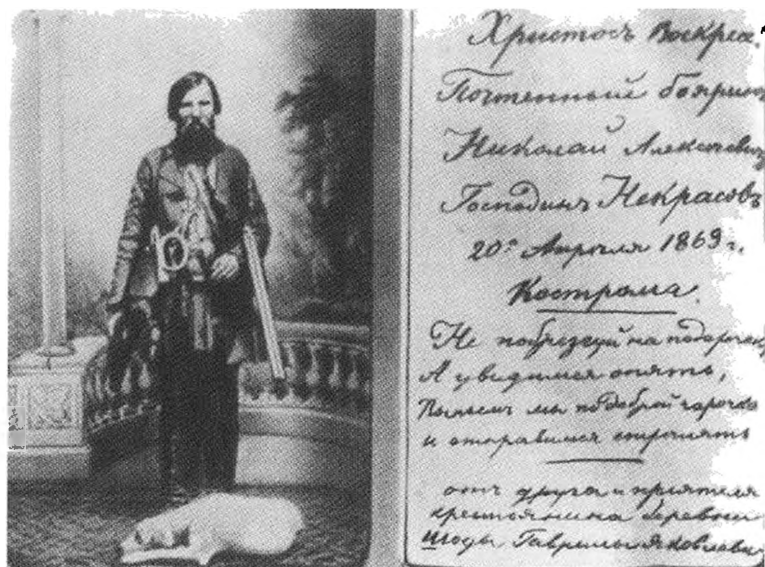 Христосъ Воскресе.
Почтенный бояринъ
Николай Алексѣевичъ
Господинъ Некрасовъ
20го Апрѣля 1869 г.
Кострома.
Не побрезгуй на подарочкѣ
А увидимся опять,
Выпьемъ мы по доброй чарочкѣ
и отправимся стрѣлять
отъ друга и приятеля
крестьянина деревни
Шоды Гаврилы Яковлева